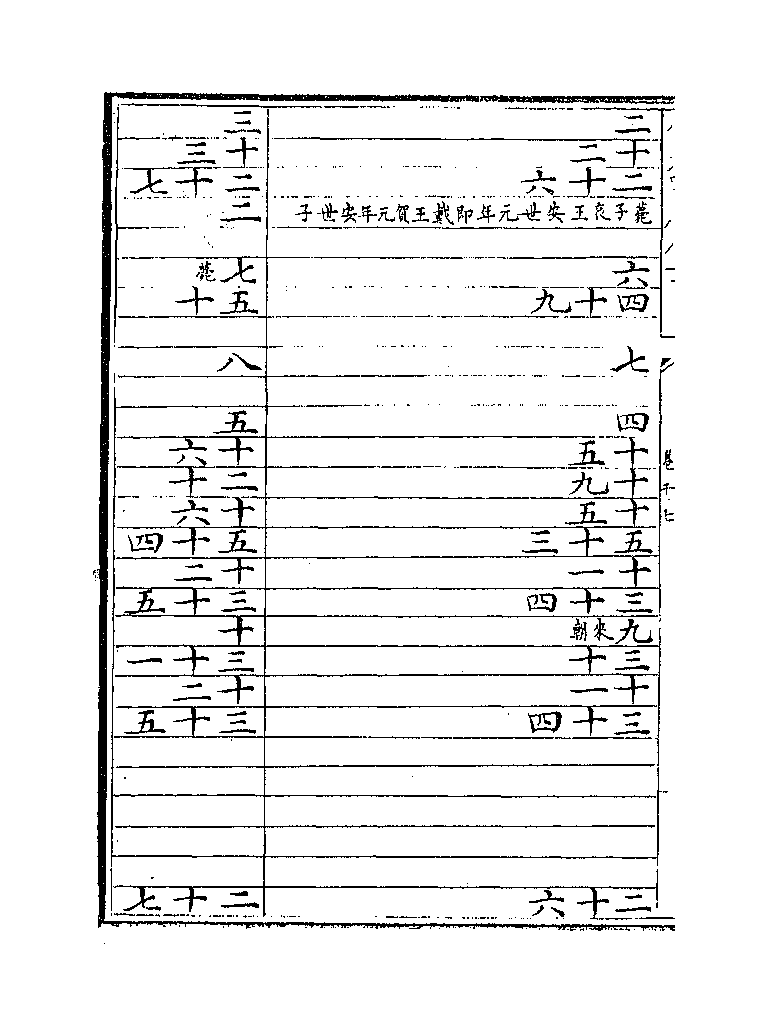 卷十七
二
十二
二十六
薨子哀王安世元年即戴王賀元年安世子
六
四十九
七
四
十五
十九
十五
五十三
十一
三十四
九來朝
三十
十一
三十四
二十六
三
十三
二十七
二
七薨
五十
八
五
十六
二十
十六
五十四
十二
三十五
十
三十一
十二
三十五
二十七